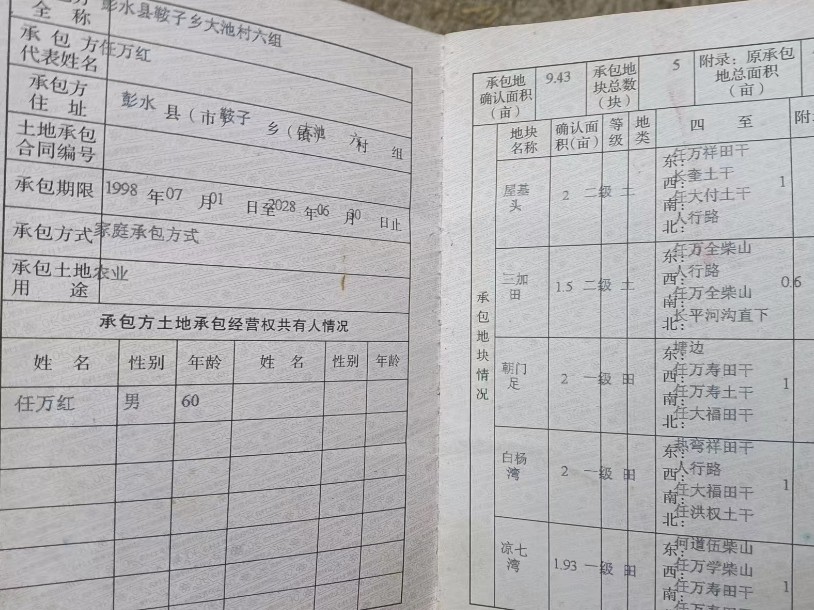 全 称 彭水县鞍子乡大池村六组
承包方 任万红
代表姓名
承包方
住 址 彭水 县(市)鞍子 乡(镇)大池 村 六 组
土地承包
合同编号
承包期限 1998 年 07 月 01 日至 2028 年 06 月 30 日止
承包方式 家庭承包方式
承包土地 农业
用 途
承包方土地承包经营权共有人情况
姓 名 性别 年龄 姓 名 性别 年龄
任万红 男 60
承包地
确认面积
(亩)
9.43
承包地
块总数
(块)
5
附录:原承包
地总面积
(亩)
承包地块情况
地块
名称
确认面
积(亩)
等级
地类
四 至
附
屋基
头
2 二级 土
东:任万祥田干
西:长奎土干
南:任大付土干
北:人行路
1
三加
田
1.5 二级 土
东:任万全柴山
西:人行路
南:任万全柴山
北:长平河沟直下
0.6
朝门
足
2 一级 田
东:塘边
西:任万寿田干
南:任万寿土干
北:任大福田干
1
白杨
湾
2 一级 田
东:弯祥田干
西:人行路
南:任大福田干
北:任洪权土干
1
凉七
湾
1.93 一级 田
东:何道伍柴山
西:任万学柴山
南:任万寿田干
1